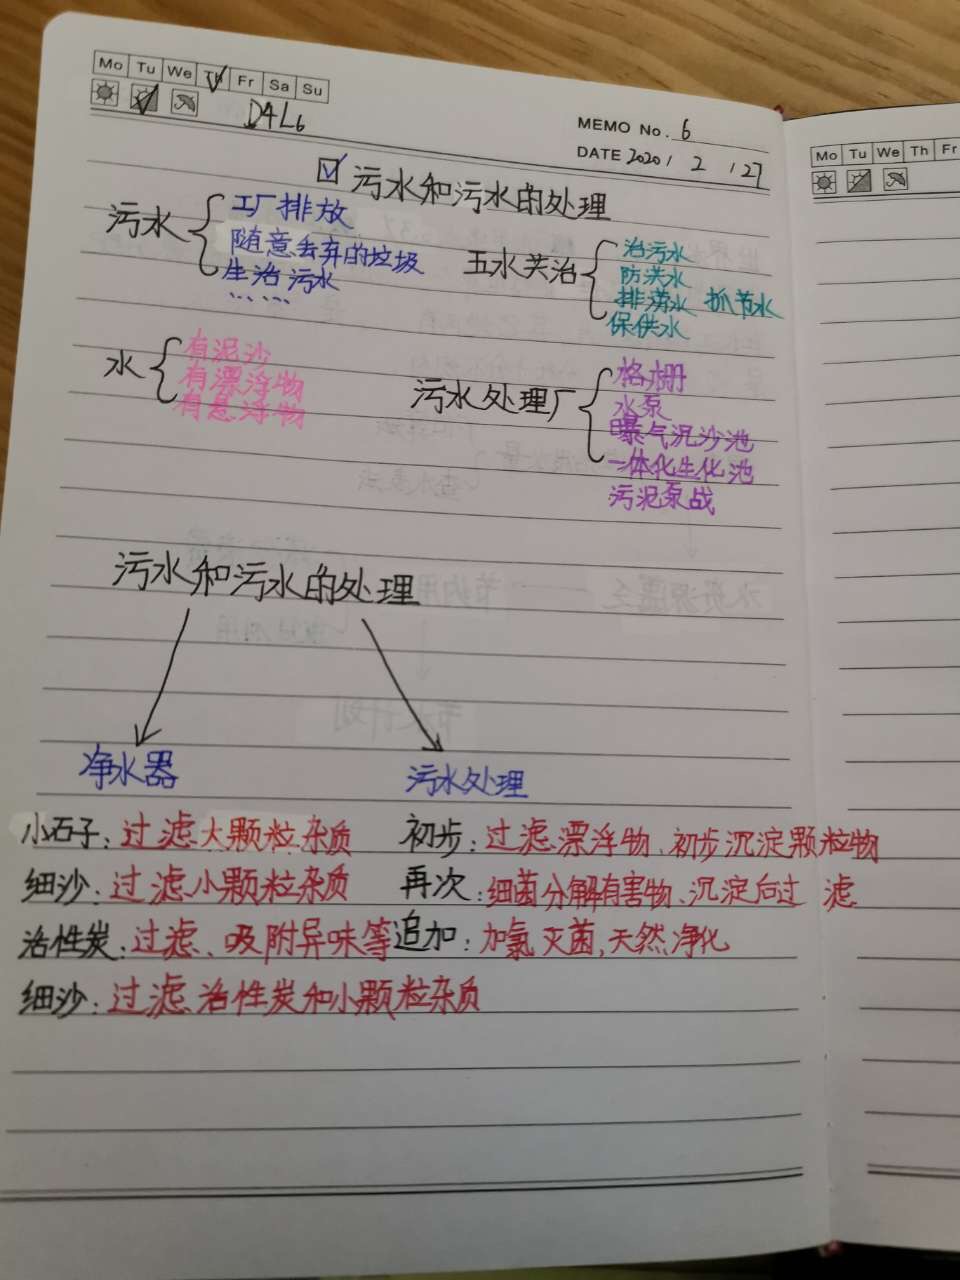 Mo Tu We Th Fr Sa Su
D4L6
MEMO No. 6
DATE 2020 / 2 / 27
污水和污水的处理
污水
工厂排放
随意丢弃的垃圾
生活污水
……
五水共治
治污水
防洪水
排涝水 抓节水
保供水
水
有泥沙
有漂浮物
有悬浮物
污水处理厂
格栅
水泵
曝气沉沙池
一体化生化池
污泥泵战
污水和污水的处理
净水器
污水处理
小石子:过滤大颗粒杂质
初步:过滤漂浮物、初步沉淀颗粒物
细沙:过滤小颗粒杂质
再次:细菌分解有害物、沉淀后过滤
活性炭:过滤、吸附异味等
追加:加氯灭菌,天然净化
细沙:过滤活性炭和小颗粒杂质
Mo Tu We Th Fr